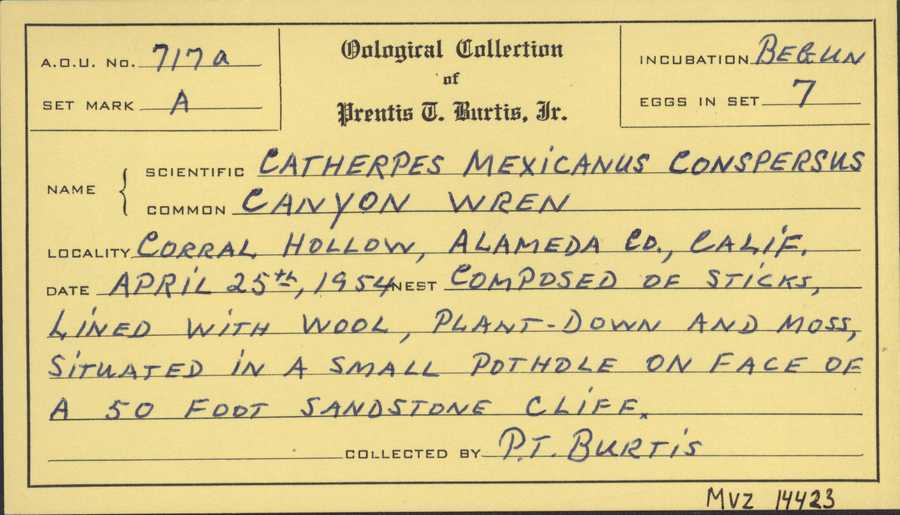 A.O.U. No. 717a
SET MARK A
Oological Collection
of
Prentis T. Burtis, Jr.
INCUBATION BEGUN
EGGS IN SET 7
NAME { SCIENTIFIC CATHERPES MEXICANUS CONSPERSUS
COMMON CANYON WREN
LOCALITY CORRAL HOLLOW, ALAMEDA CO., CALIF.
DATE APRIL 25th, 1954 NEST COMPOSED OF STICKS,
LINED WITH WOOL, PLANT-DOWN AND MOSS,
SITUATED IN A SMALL POTHOLE ON FACE OF
A 50 FOOT SANDSTONE CLIFF.
COLLECTED BY P.T. BURTIS
MVZ 14423